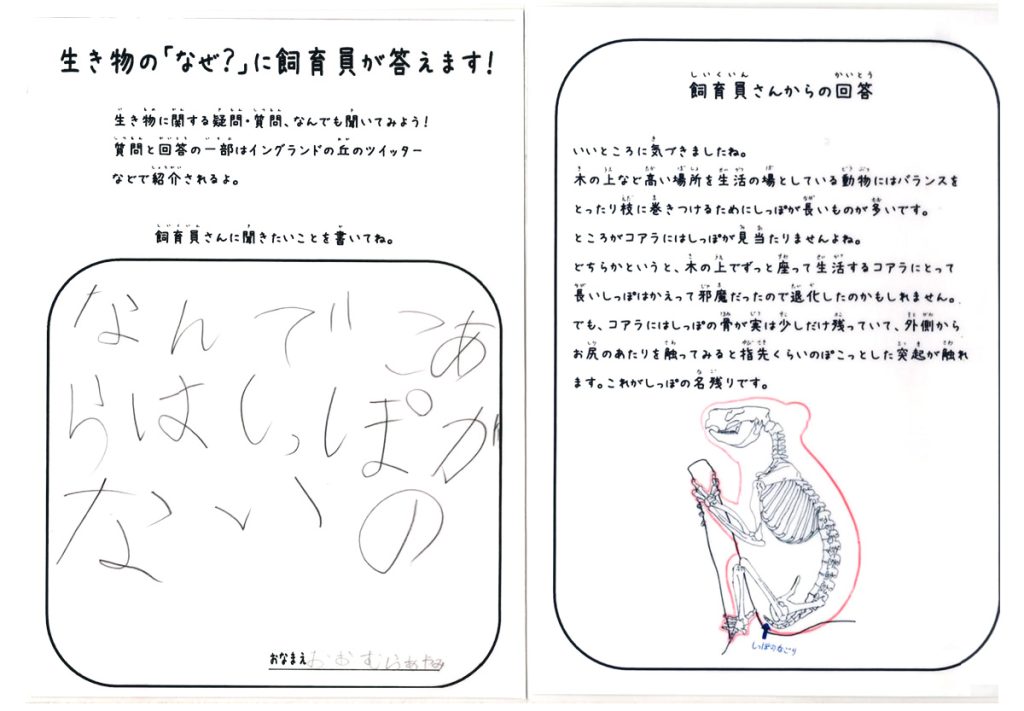 生き物の「なぜ?」に飼育員が答えます!
生き物に関する疑問・質問、なんでも聞いてみよう!
質問と回答の一部はイングランドの丘のツイッター
などで紹介されるよ。
飼育員さんに聞きたいことを書いてね。
なんでこあ
らはしっぽが
ないの
おなまえ
飼育員さんからの回答
いいところに気づきましたね。
木の上など高い場所を生活の場としている動物にはバランスを
とったり枝に巻きつけるためにしっぽが長いものが多いです。
ところがコアラにはしっぽが見当たりませんよね。
どちらかというと、木の上でずっと座って生活するコアラにとって
長いしっぽはかえって邪魔だったので退化したのかもしれません。
でも、コアラにはしっぽの骨が実は少しだけ残っていて、外側から
お尻のあたりを触ってみると指先くらいのぽこっとした突起が触れ
ます。これがしっぽの名残りです。
しっぽのなごり